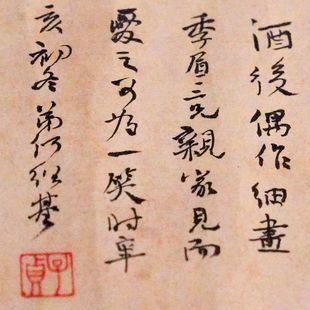 酒後偶作細畫
季眉三兄親家見而
愛之可為一笑時辛
亥初冬弟何紹基
子貞